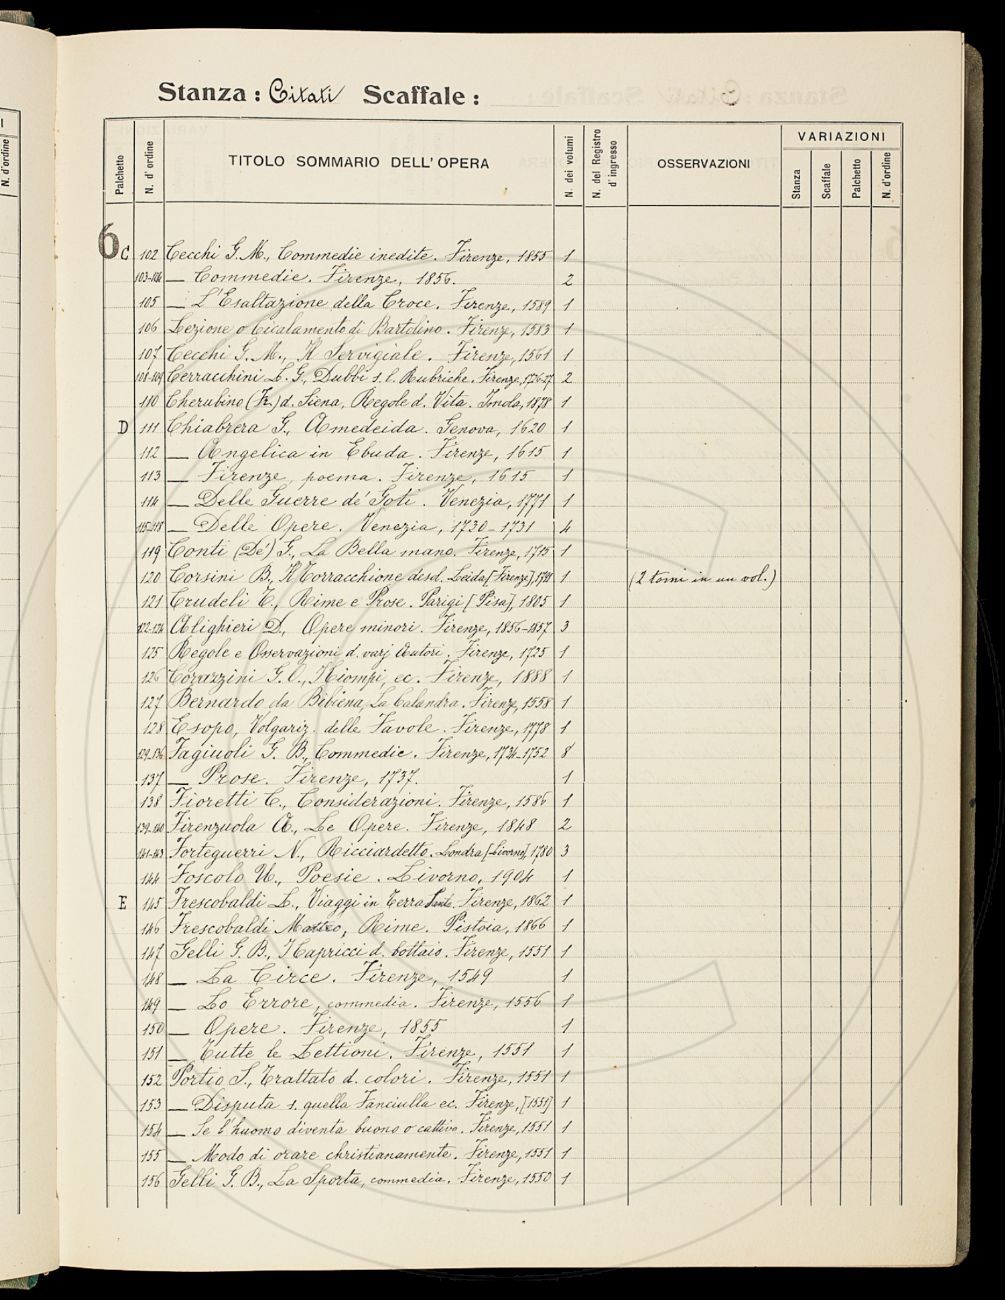 Stanza: Citati Scaffale:
Palchetto N. d'ordine TITOLO SOMMARIO DELL'OPERA N. dei volumi N. del Registro d'ingresso OSSERVAZIONI VARIAZIONI
Stanza Scaffale Palchetto N. d'ordine
6
C 102 Cecchi G. M., Commedie inedite. Firenze, 1855 1
103-104 — Commedie. Firenze, 1856. 2
105 — L'Esaltazione della Croce. Firenze, 1589 1
106 Lezione o Cicalamento di Bartolino. Firenze, 1583 1
107 Cecchi G. M., Il Servigiale. Firenze, 1561 1
108-109 Cerracchini L. G., Dubbi s. l. Rubriche. Firenze, 1726-27 2
110 Cherubino (Fr.) d. Siena, Regole d. Vita. Imola, 1878 1
D 111 Chiabrera G., Amedeida. Genova, 1620 1
112 — Angelica in Ebuda. Firenze, 1615 1
113 — Firenze, poema. Firenze, 1615 1
114 — Delle Guerre de' Goti. Venezia, 1771 1
115-118 — Delle Opere. Venezia, 1730-1731 4
119 Conti (De') G., La Bella mano. Firenze, 1715 1
120 Corsini B., Il Torracchione desol. Leida [Firenze], 1791 1 (2 tomi in un vol.)
121 Crudeli T., Rime e Prose. Parigi [Pisa], 1805 1
122-124 Alighieri D., Opere minori. Firenze, 1856-1857 3
125 Regole e Osservazioni d. varj Autori. Firenze, 1725 1
126 Corazzini G. O., I Ciompi, ec. Firenze, 1888 1
127 Bernardo da Bibiena, La Calandra. Firenze, 1558 1
128 Esopo, Volgariz. delle Favole. Firenze, 1778 1
129-136 Fagiuoli G. B., Commedie. Firenze, 1734-1752 8
137 — Prose. Firenze, 1737. 1
138 Fioretti C., Considerazioni. Firenze, 1586 1
139-140 Firenzuola A., Le Opere. Firenze, 1848 2
141-143 Forteguerri N., Ricciardetto. Londra [Livorno], 1780 3
144 Foscolo U., Poesie. Livorno, 1904 1
E 145 Frescobaldi L., Viaggi in Terra Santa. Firenze, 1862 1
146 Frescobaldi Matteo, Rime. Pistoia, 1866 1
147 Gelli G. B., I Capricci d. bottaio. Firenze, 1551 1
148 — La Circe. Firenze, 1549 1
149 — Lo Errore, commedia. Firenze, 1556 1
150 — Opere. Firenze, 1855 1
151 — Tutte le Lettioni. Firenze, 1551 1
152 Portio S., Trattato d. colori. Firenze, 1551 1
153 — Disputa s. quella Fanciulla ec. Firenze, [1551] 1
154 — Se l'huomo diventa buono o cattivo. Firenze, 1551 1
155 — Modo di orare christianamente. Firenze, 1551 1
156 Gelli G. B., La Sporta, commedia. Firenze, 1550 1